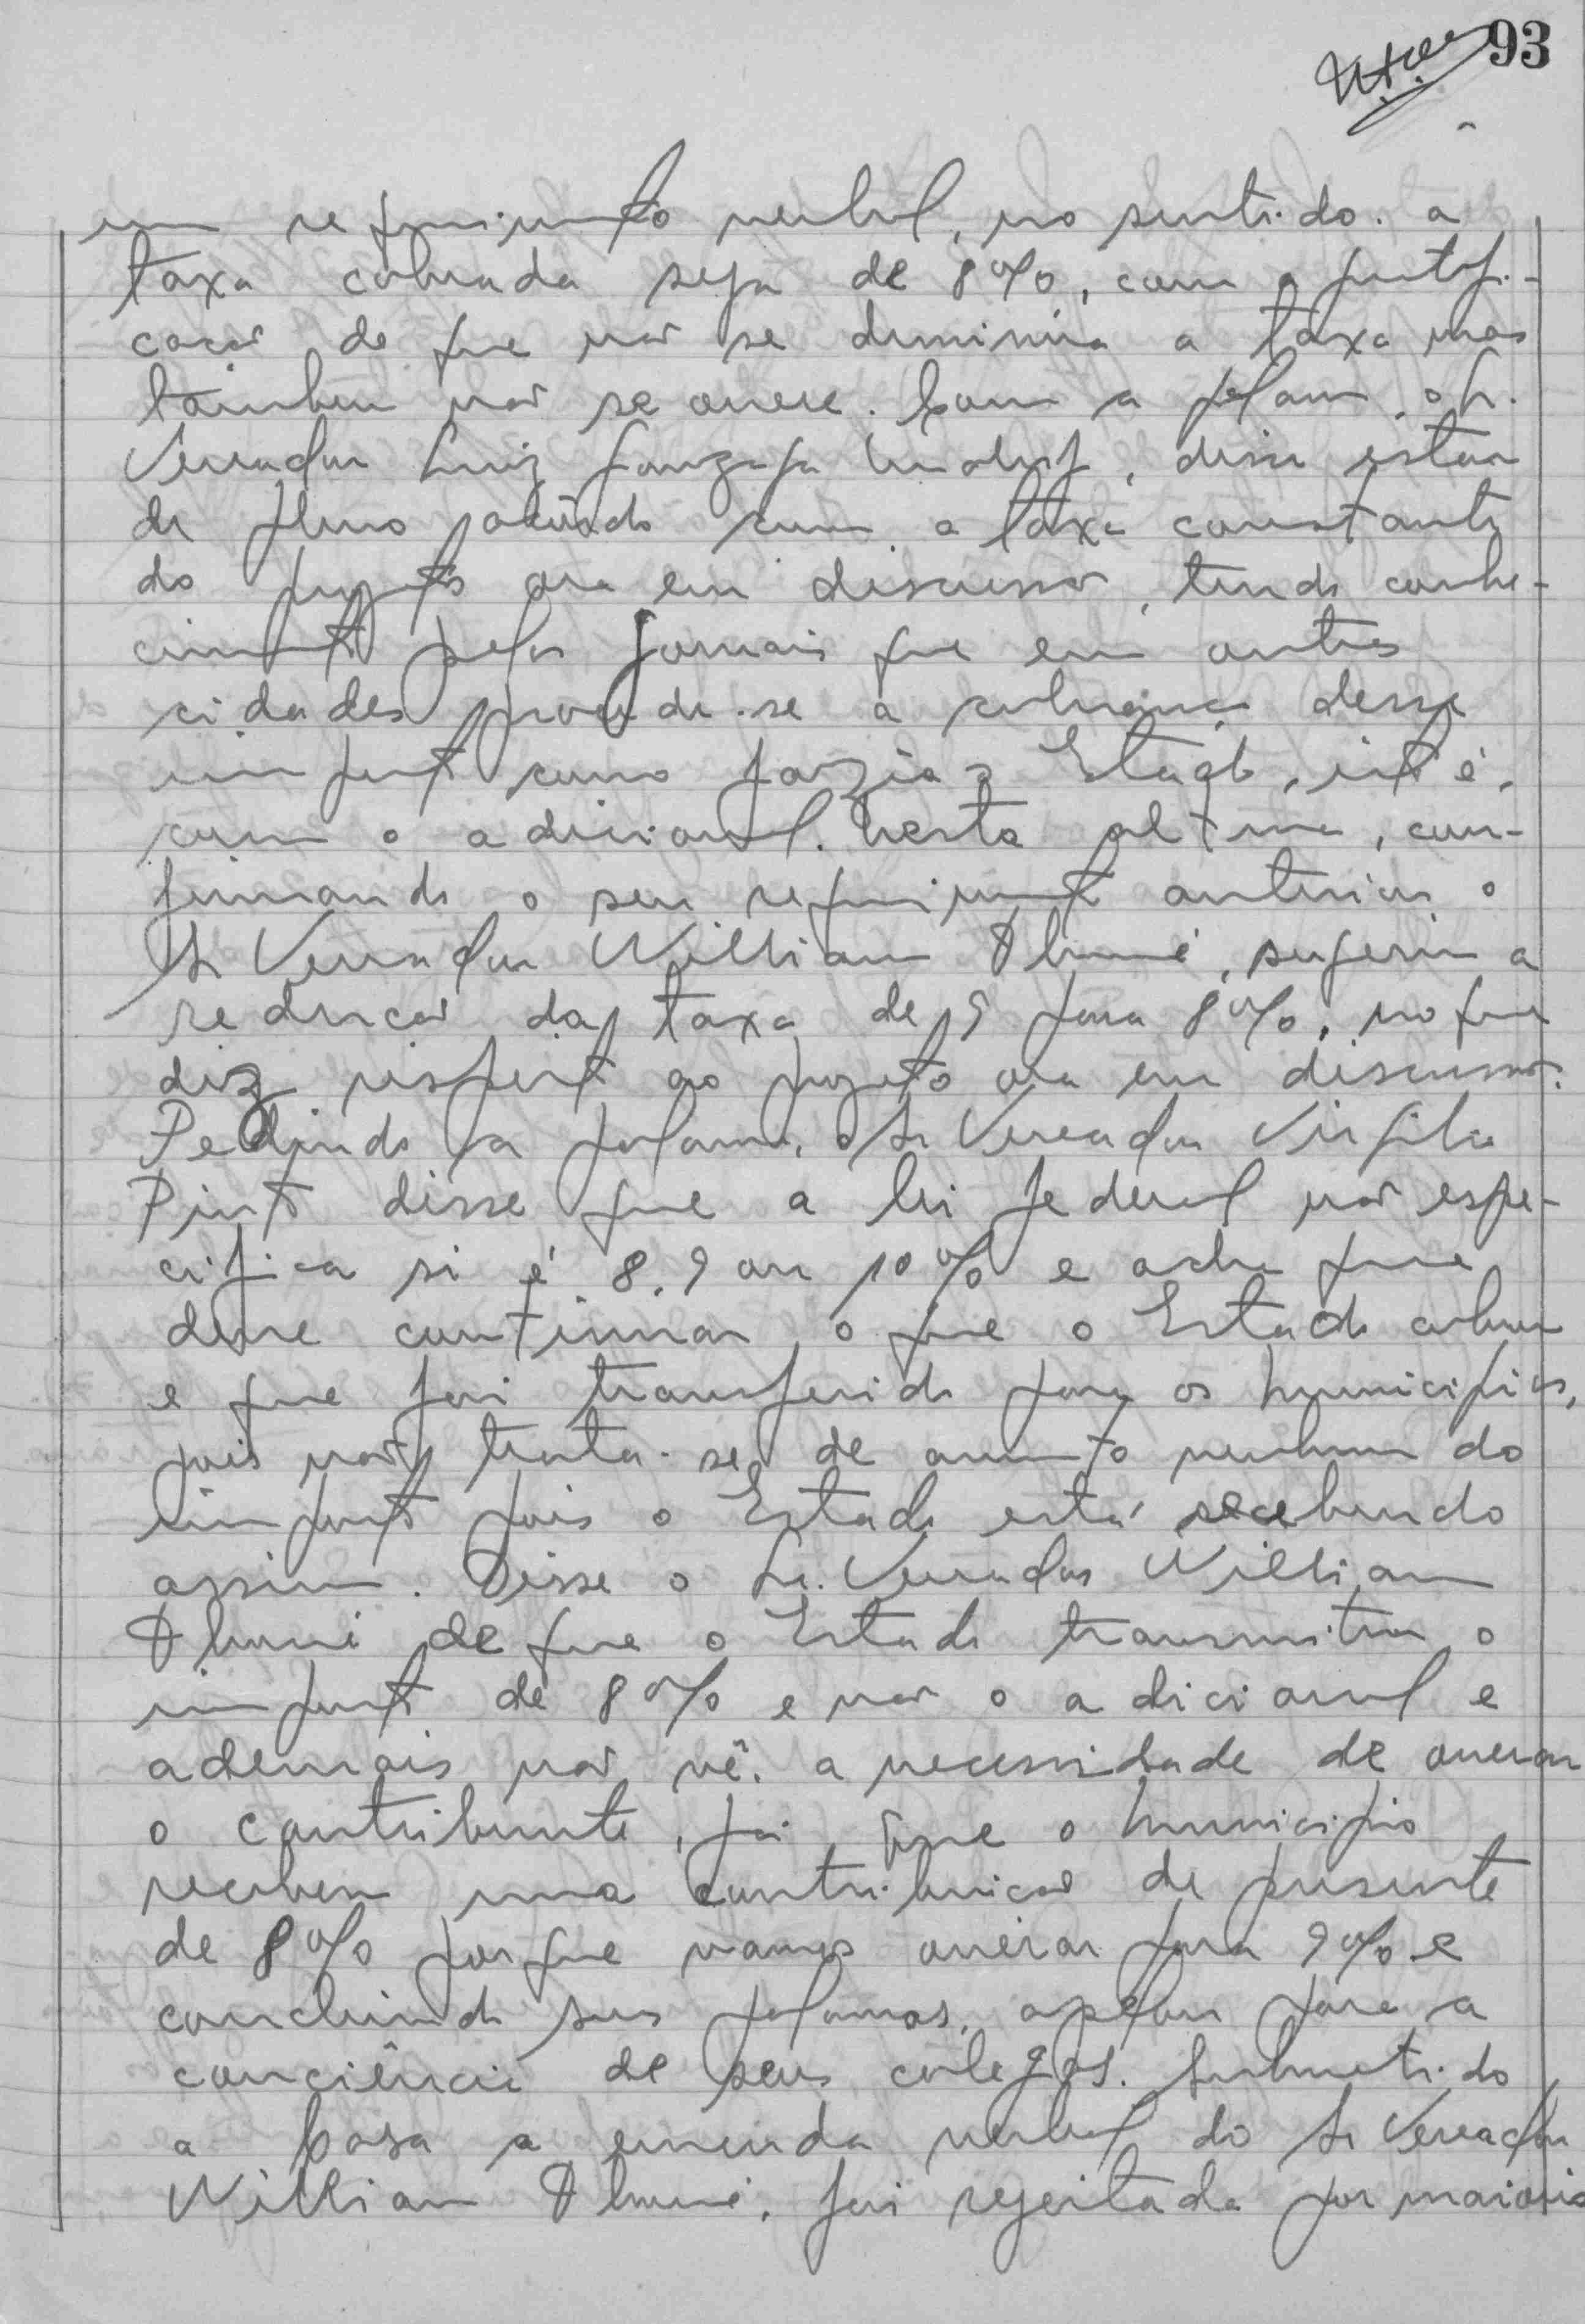 93
um requerimento verbal, no sentido. a
taxa cobrada seja de 8%, com a justifi-
cação de que não se diminúa a taxa mas
tambem não se onere. Com a palavra, o Sr.
Vereador Luiz Gonzaga, disse estar
de pleno acôrdo com a taxa constante
do projeto ora em discussão, tendo conhe-
cimento pelos Jornais que em outras
cidades procede-se a cobrança desse
imposto como fazia o Estado, isto é,
com o adicional. Nesta altura, con-
firmando o seu requerimento anterior o
Sr Vereador William, sugeriu a
redução da taxa de 9 para 8%, no que
diz respeito ao projeto ora em discussão.
Pedindo a palavra, o Sr Vereador Virgilio
Pinto disse que a lei federal não espe-
cifica si é 8, 9 ou 10% e acha que
deve continuar o que o Estado cobrou
e que foi transferido para os Municipios,
pois não trata-se de aumento nenhum do
imposto pois o Estado está recebendo
assim. Disse o Sr. Vereador William
de que o Estado transmitiu o
imposto de 8% e não o adicional e
ademais não vê. a necessidade de onerar
o contribuinte, já que o Municipio
recebeu uma contribuição de presente
de 8% porque vamos onerar para 9% e
concluindo suas palavras, apelou para a
conciência de seus colegas. Submetido
a Casa a emenda verbal do Sr Vereador
William, foi rejeitada por maioria